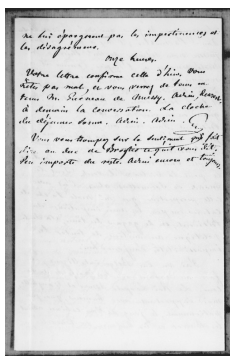 ne lui épargnent pas les impertinences et
les désagréments.
onze heures.
Votre lettre confirme celle d'hier. Vous
n'êtes pas mal, et vous verrez de tems en
tems M. de Adieu,
à demain la conversation. La cloche
du déjeuner sonne. Adieu. Adieu.
Vous vous trompez sur le sentiment qui fait
dire au duc de Broglie ce qu'il vous dit.
Peu importe du reste. Adieu encore et toujours.